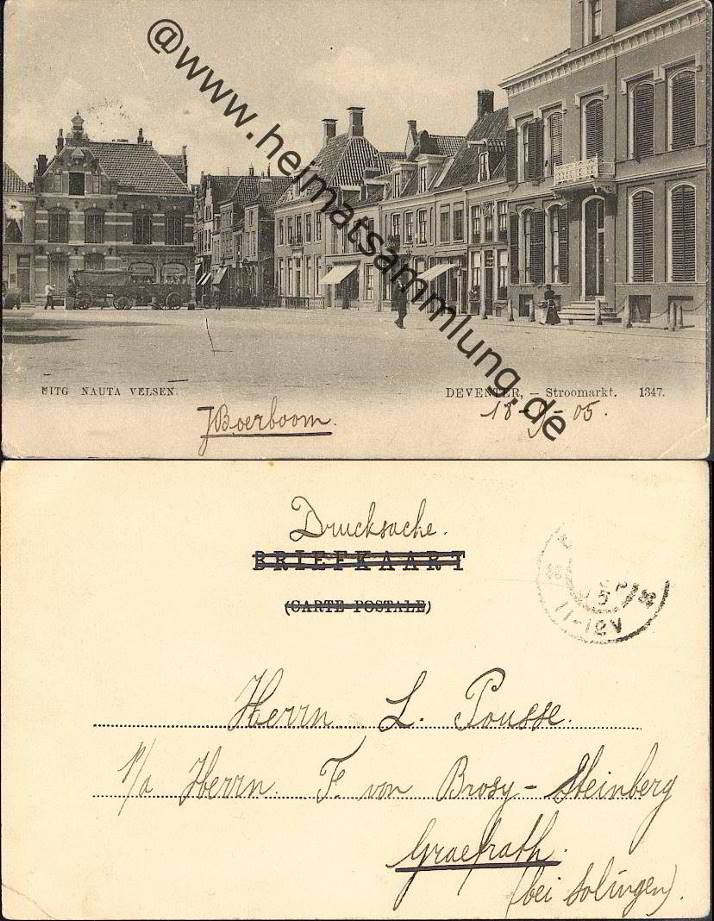 @www.heimatsammlung.de
UITG NAUTA VELSEN.
DEVENTER, — Stroomarkt. 1347.
JBoerboom.
18-9-05.
Drucksache.
BRIEFKAART
(CARTE POSTALE)
11-12V
Herrn L. Pousse.
p/a Herrn F. von Brosy-Steinberg
Graefrath.
(bei Solingen).